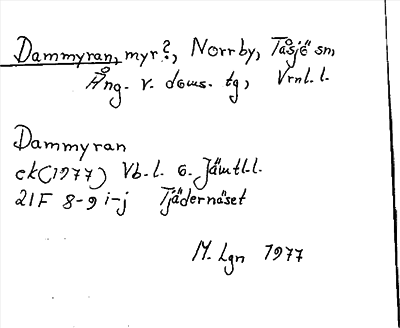 Dammyran, myr?, Norrby, Tåsjö sn,
Ång. v. doms. tg, Vrnl. l.
Dammyran
ek(1977) Vb-l. o. Jämtl.l.
21F 8-9 i-j Tjädernäset
M. Lgn 1977